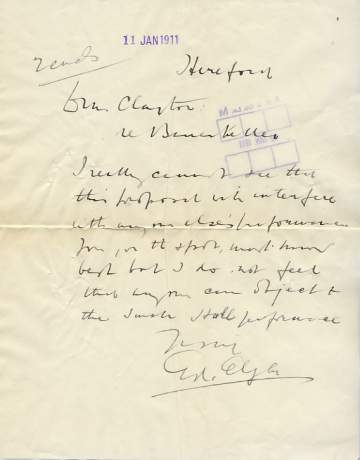 11 JAN 1911
Hereford
Dear Clayton:
re
I really cannot see that
this proposal will interfere
with anyone else's performance
You, on the spot, must know
best but I do not feel
that anyone can object to
the Small Hall performance
Yrs sincy
Ed. Elgar